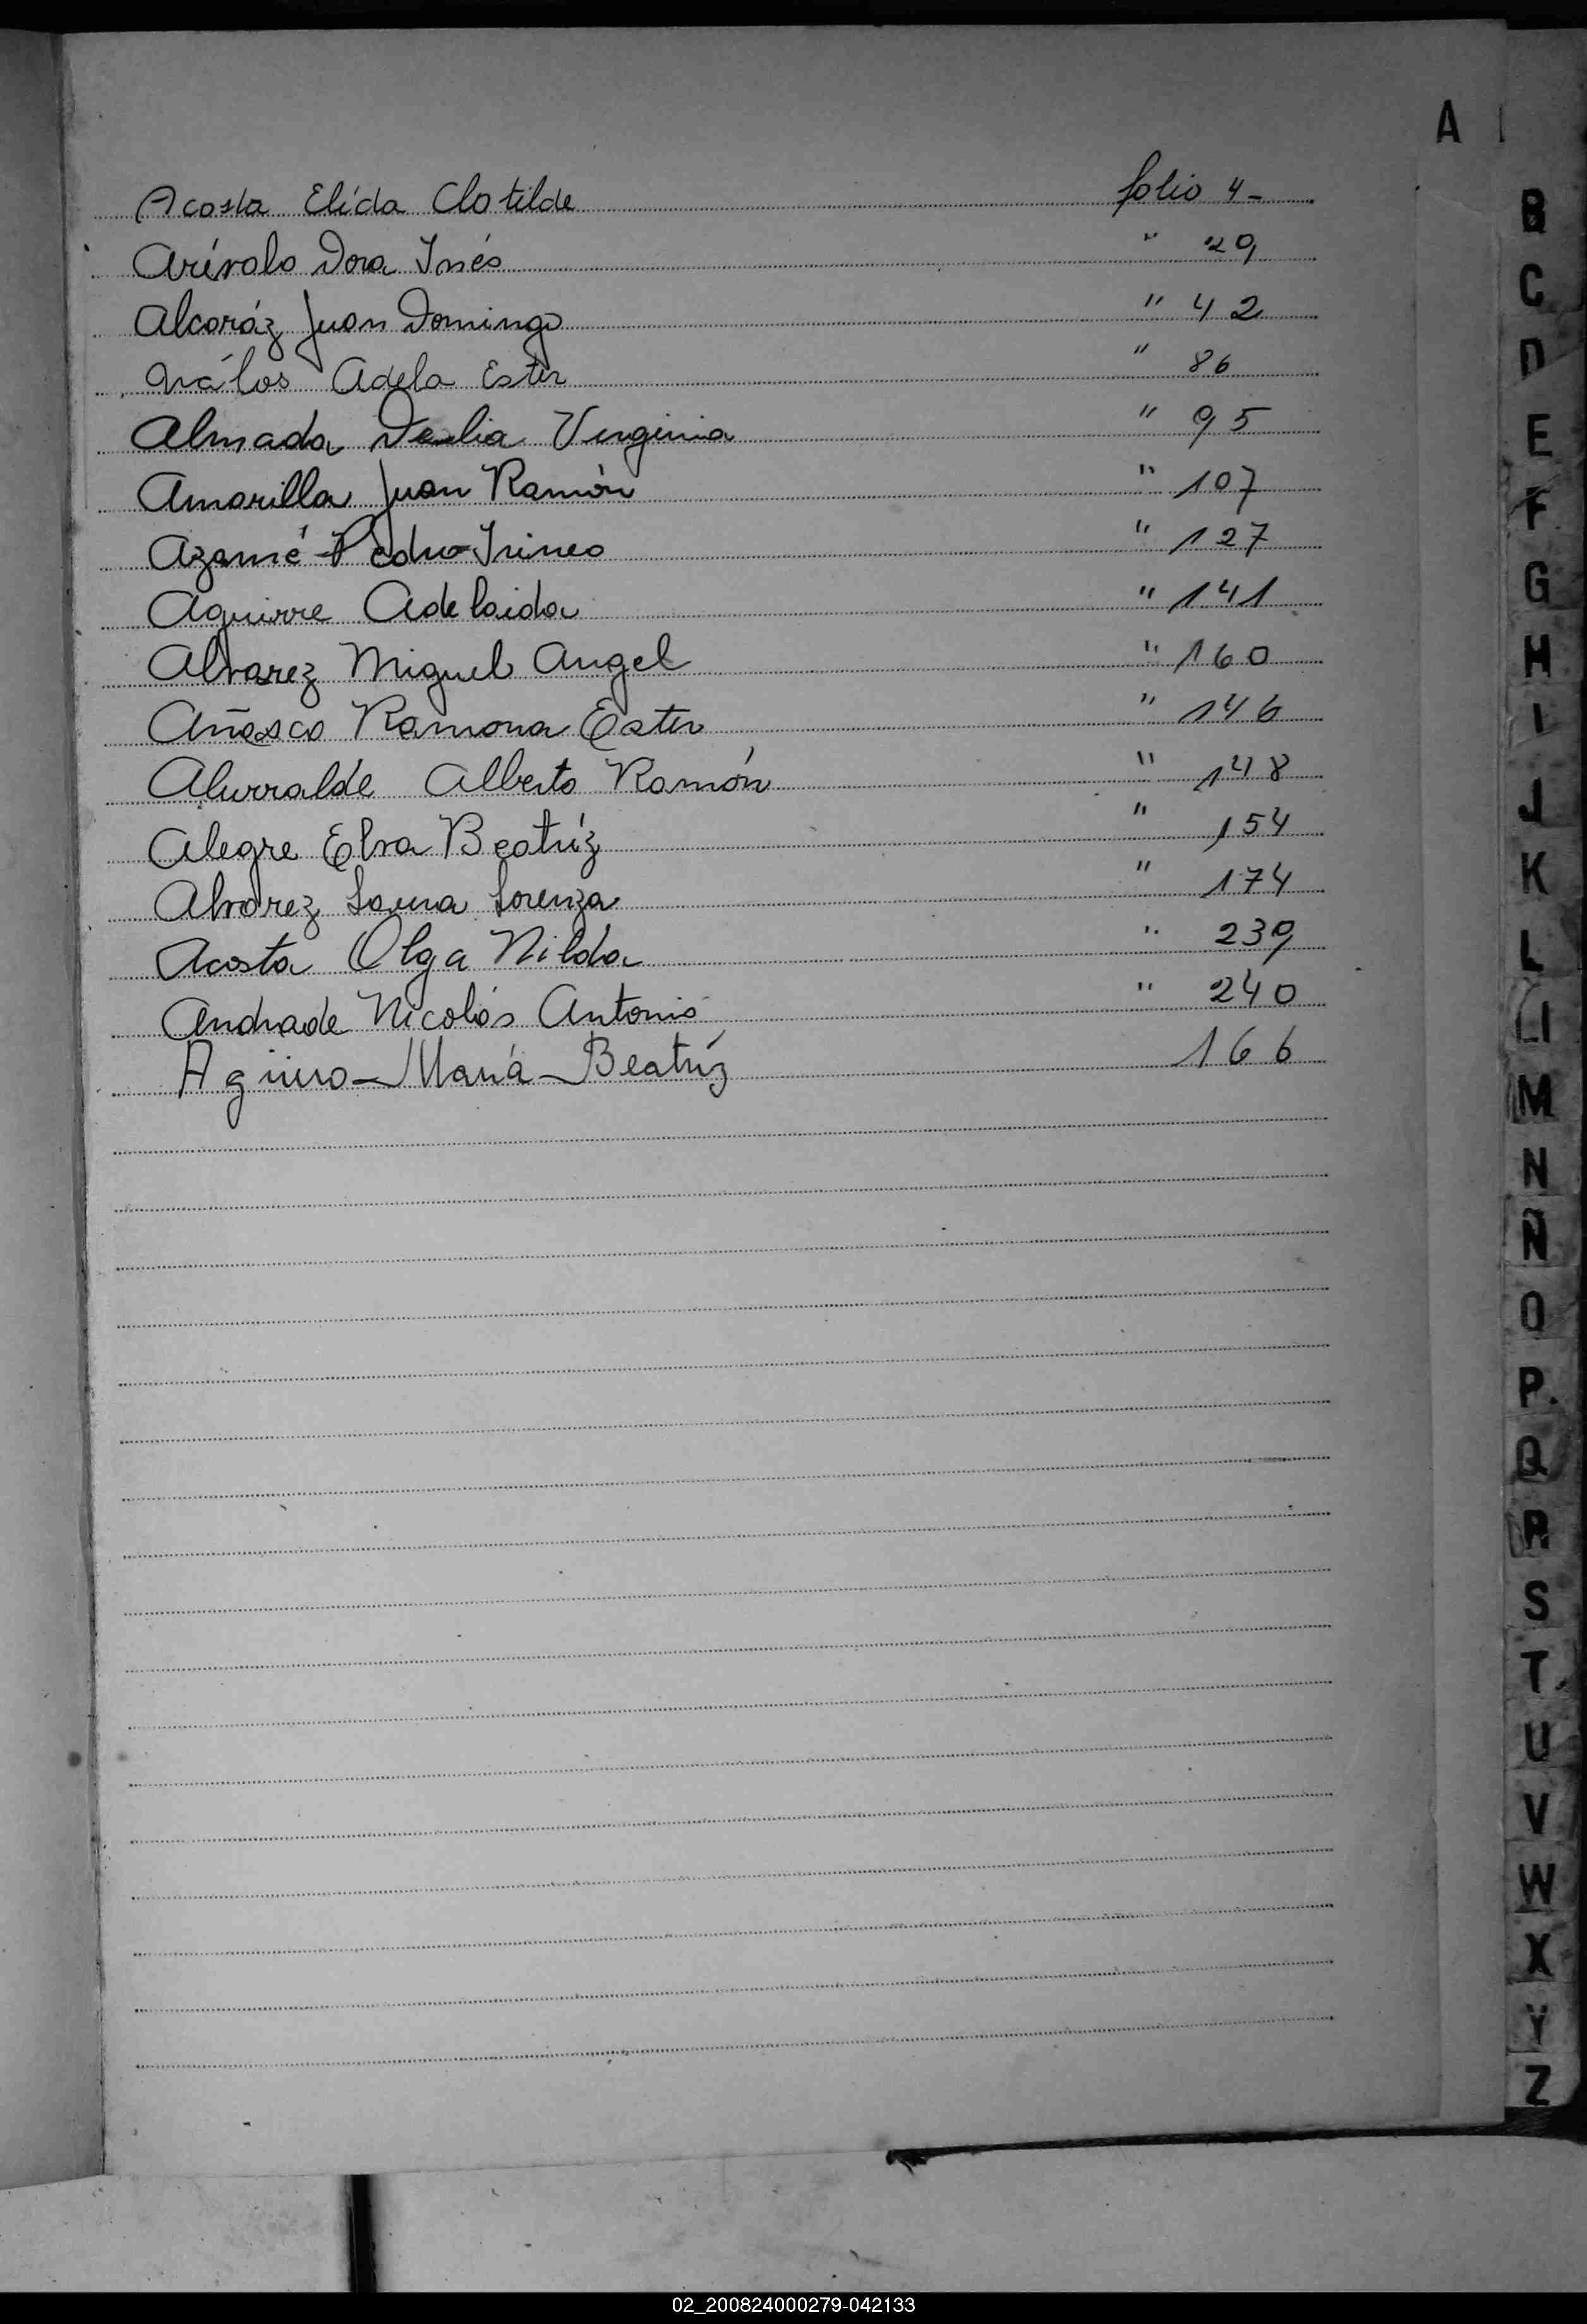 A
Acosta Elída Clotilde folio 4-
Arévalo Dora Inés " 29
Alcaráz Juan Domingo " 42
Adela Ester " 86
Almada Delia Virginia " 95
Amarilla Juan Ramón " 107
Azamé Pedro Irineo " 127
Aguirre Adelaida " 141
Alvarez Miguel Angel " 160
Añasco Ramona Ester " 146
Alurralde Alberto Ramón " 148
Alegre Elva Beatríz " 154
Alvarez Lorenza " 174
Acosta Olga Nilda " 239
Andrade Nicolás Antonio " 240
Agüero-María-Beatríz 166
B
C
D
E
F
G
H
I
J
K
L
Ll
M
N
Ñ
O
P
Q
R
S
T
U
V
W
X
Y
Z
02_200824000279-042133